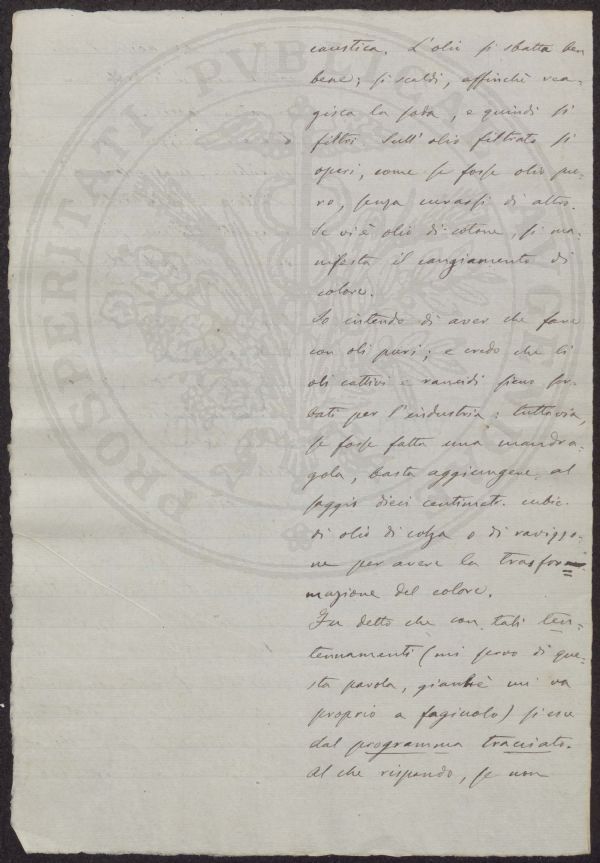 caustica. L'olio si sbatta ben
bene; si scaldi, affinchè rea-
gisca la soda, e quindi si
filtri. Sull'olio filtrato si
operi, come se fosse olio pu-
ro, senza curarsi di altro.
Se vi è olio di cotone, si ma-
nifesta il cangiamento di
colore.
Io intendo di aver che fare
con oli puri; e credo che li
oli cattivi e rancidi sieno ser-
bati per l'industria: tuttavia,
se fosse fatta una mandra-
gola, basta aggiungere al
saggio dieci centimetr. cubic.
di olio di colza o di ravizzo-
ne per avere la trasfor-
mazione del colore.
Fu detto che con tali ten-
tennamenti (mi servo di que-
sta parola, gianchè mi va
proprio a fagiuolo) si esce
dal programma tracciato.
Al che rispondo, se non
PROSPERITATI PVBLICAE